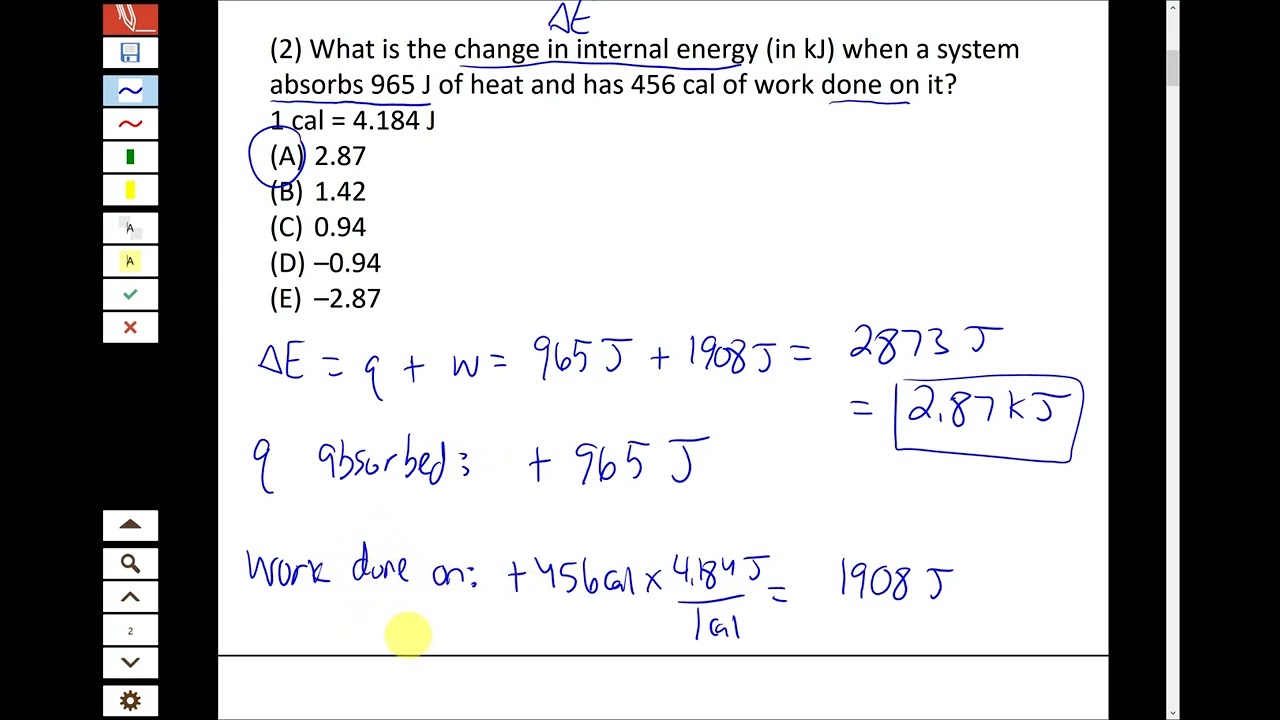 ΔE
(2) What is the change in internal energy (in kJ) when a system
absorbs 965 J of heat and has 456 cal of work done on it?
1 cal = 4.184 J
(A) 2.87
(B) 1.42
(C) 0.94
(D) –0.94
(E) –2.87
ΔE = q + w = 965 J + 1908 J = 2873 J
= 2.87 kJ
q absorbed: + 965 J
Work done on: +456 cal × 4.184 J = 1908 J
1 cal
A
A
2